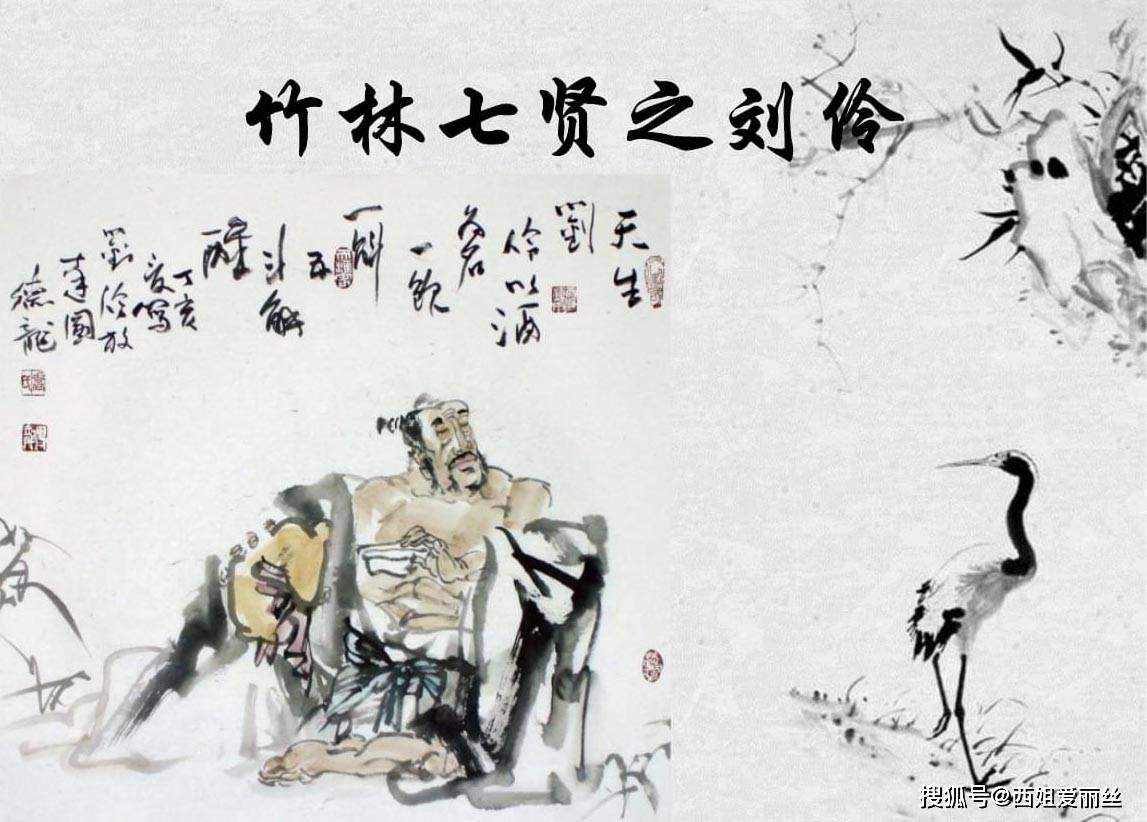 竹林七贤之刘伶
天生
劉
伶以酒
为名
一飲
一斛
五
斗解
酲
丁亥
夏寫
劉伶放
達圖
德龍
搜狐号@西姐爱丽丝